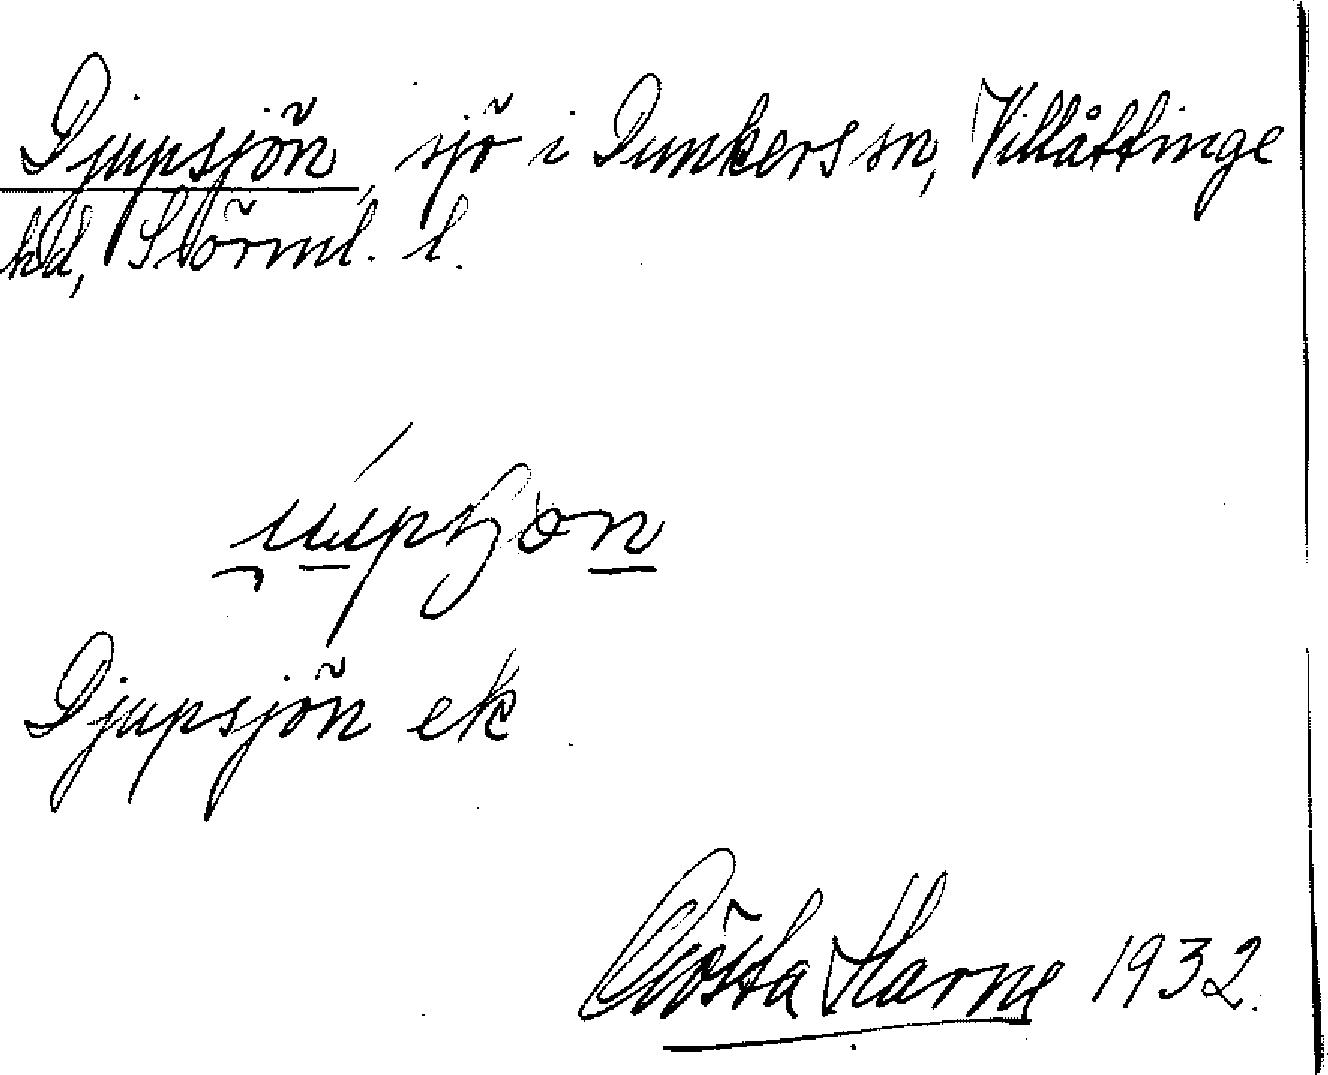 Djupsjön, sjö i Dunkers sn, Villåttinge
hd, Sörml. l.
Djupsjön ek
Gösta Harne 1932.